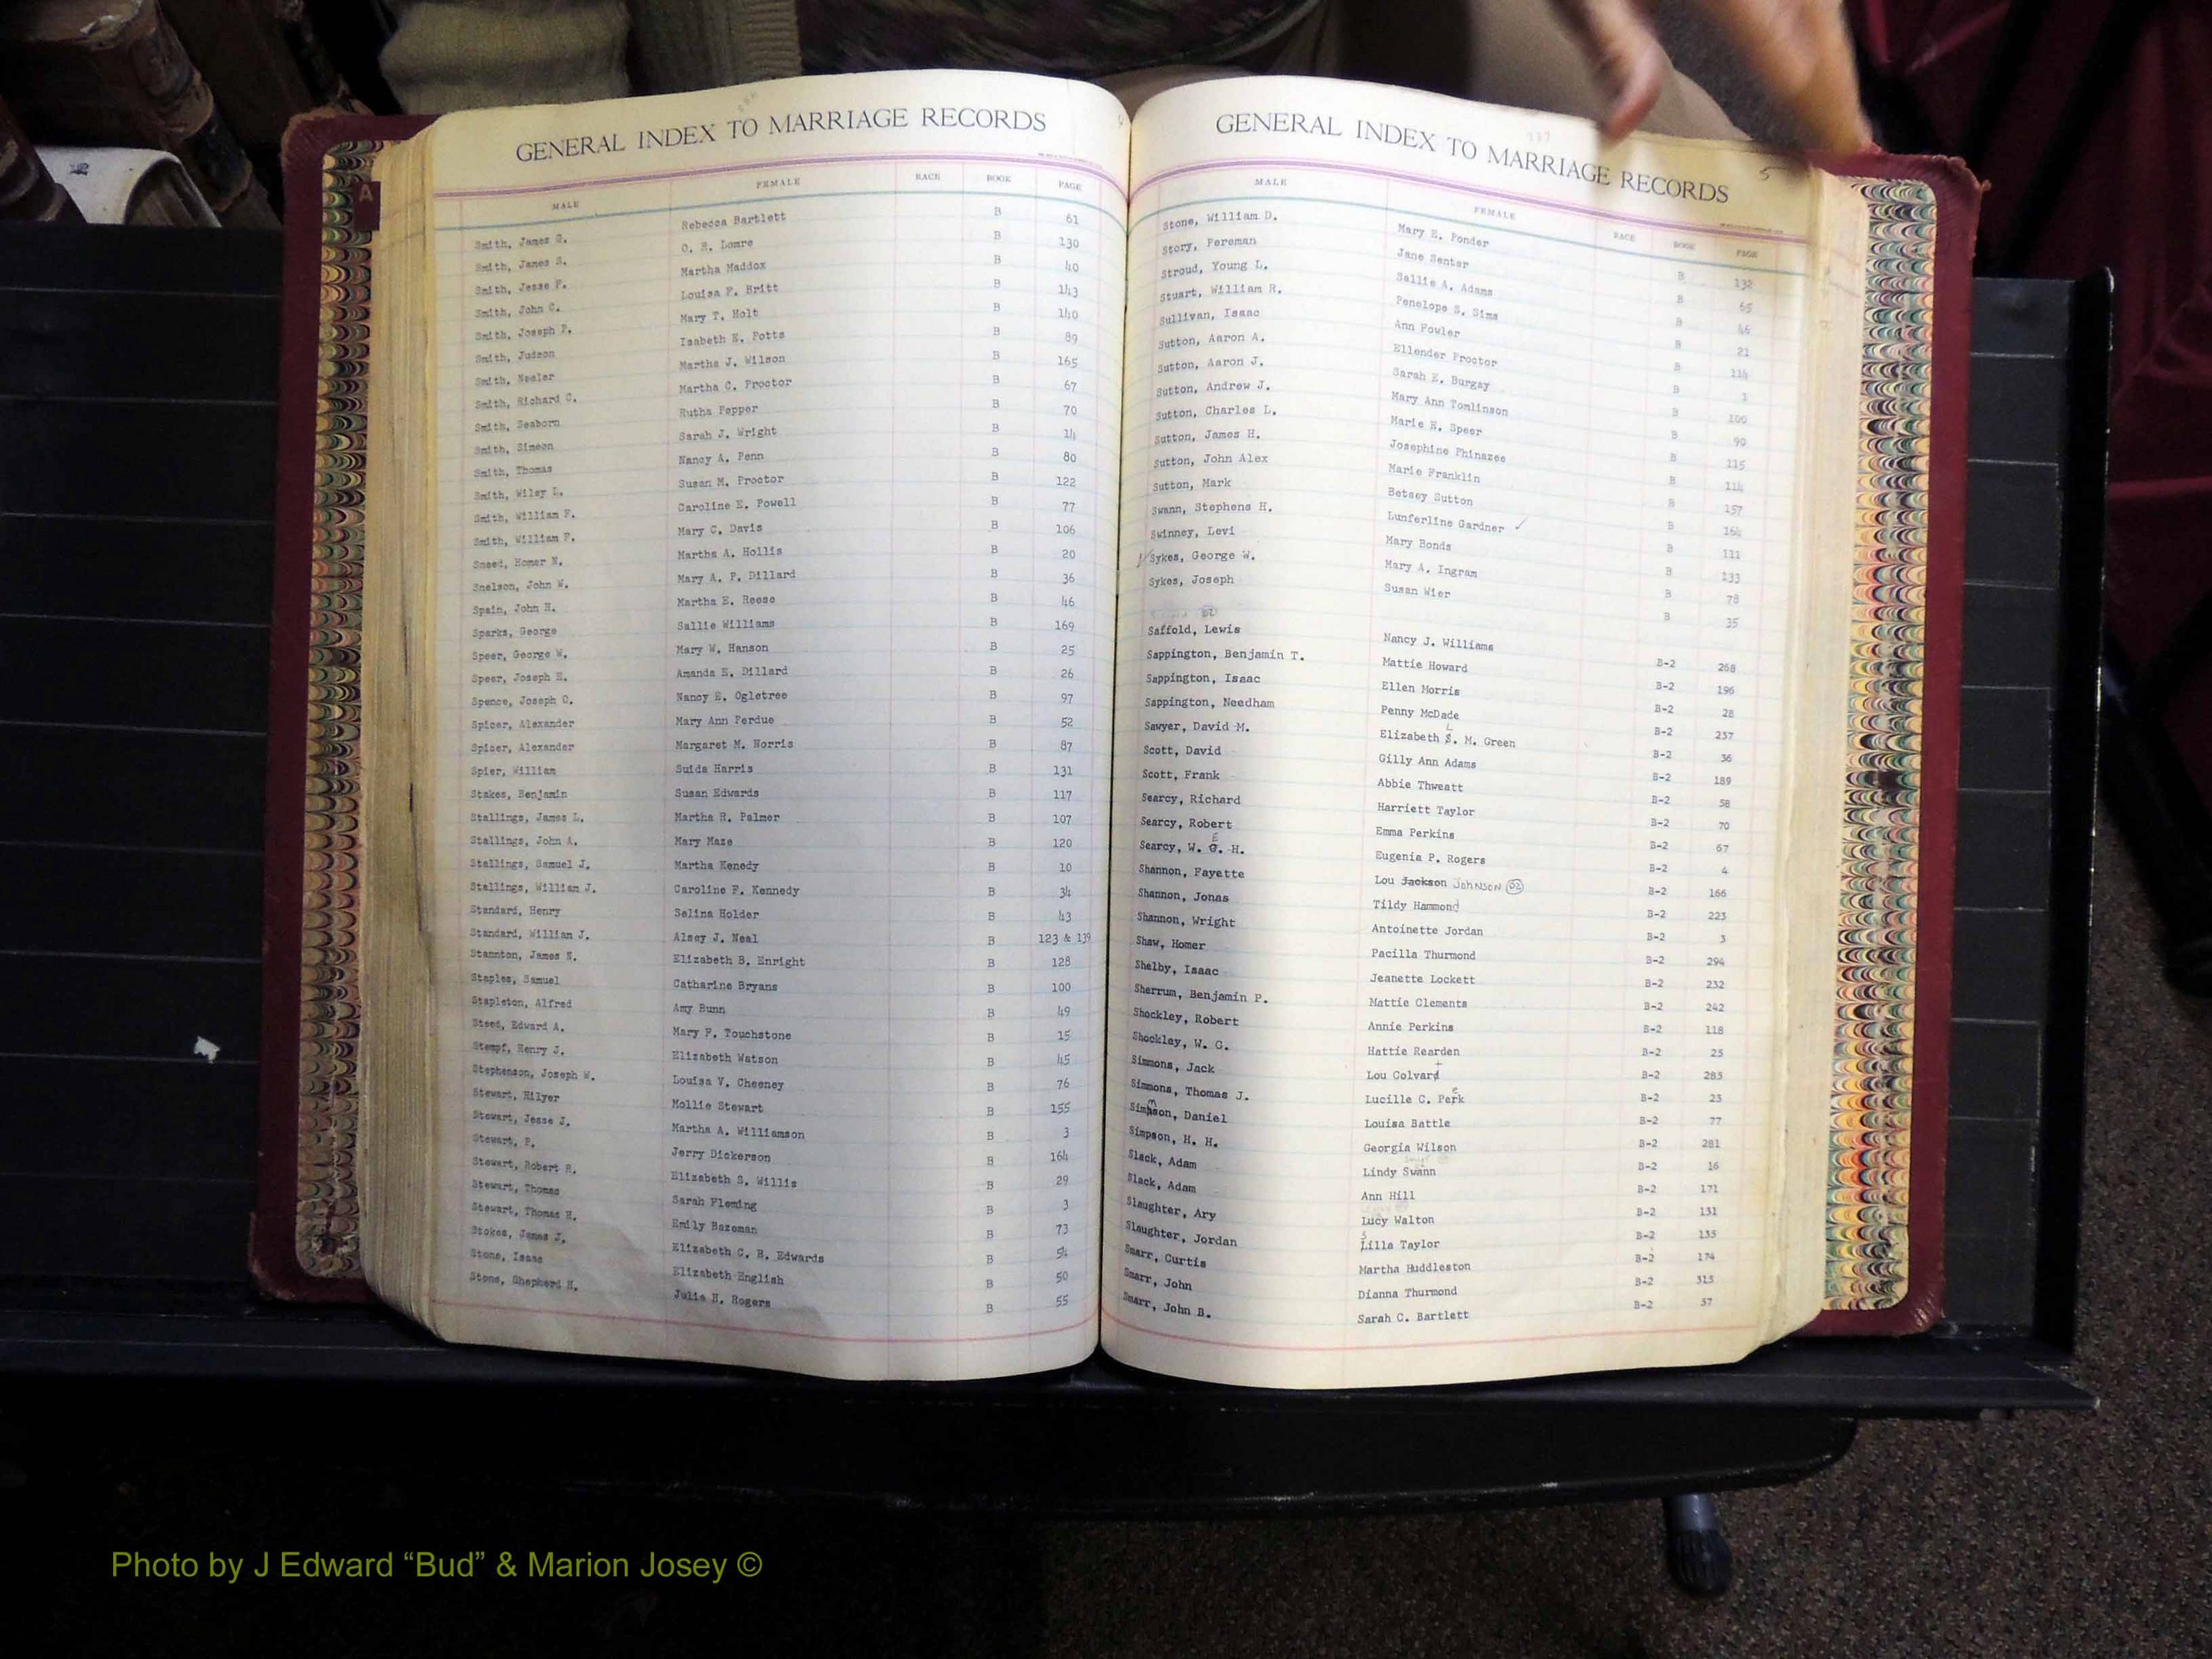 GENERAL INDEX TO MARRIAGE RECORDS
MALE FEMALE RACE BOOK PAGE
Smith, James G. Rebecca Bartlett B 61
Smith, James S. O. R. Lowre B 130
Smith, Jesse F. Martha Maddox B 40
Smith, John C. Louisa F. Britt B 143
Smith, Joseph P. Mary T. Holt B 140
Smith, Judson Isabeth E. Potts B 89
Smith, Neeler Martha J. Wilson B 165
Smith, Richard C. Martha C. Proctor B 67
Smith, Seaborn Rutha Pepper B 70
Smith, Simeon Sarah J. Wright B 14
Smith, Thomas Nancy A. Penn B 80
Smith, Wiley L. Susan M. Proctor B 122
Smith, William F. Caroline E. Powell B 77
Smith, William F. Mary C. Davis B 106
Sneed, Homer N. Martha A. Hollis B 20
Snelson, John W. Mary A. P. Dillard B 36
Spain, John H. Martha E. Reese B 46
Sparks, George Sallie Williams B 169
Speer, George W. Mary W. Hanson B 25
Speer, Joseph E. Amanda E. Dillard B 26
Spence, Joseph C. Nancy E. Ogletree B 97
Spicer, Alexander Mary Ann Perdue B 52
Spicer, Alexander Margaret M. Norris B 87
Spier, William Suida Harris B 131
Stakes, Benjamin Susan Edwards B 117
Stallings, James L. Martha R. Palmer B 107
Stallings, John A. Mary Maze B 120
Stallings, Samuel J. Martha Kenedy B 10
Stallings, William J. Caroline F. Kennedy B 34
Standard, Henry Selina Holder B 43
Standard, William J. Alsey J. Neal B 123 & 139
Stannton, James N. Elizabeth B. Enright B 128
Staples, Samuel Catharine Bryans B 100
Stapleton, Alfred Amy Bunn B 49
Steed, Edward A. Mary F. Touchstone B 15
Stempf, Henry J. Elizabeth Watson B 45
Stephenson, Joseph W. Louisa V. Cheeney B 76
Stewart, Hilyer Mollie Stewart B 155
Stewart, Jesse J. Martha A. Williamson B 3
Stewart, P. Jerry Dickerson B 164
Stewart, Robert R. Elizabeth S. Willis B 29
Stewart, Thomas Sarah Fleming B 3
Stewart, Thomas H. Emily Bazeman B 73
Stokes, James J. Elizabeth C. B. Edwards B 54
Stone, Isaac Elizabeth English B 50
Stone, Shepherd H. Julia H. Rogers B 55
GENERAL INDEX TO MARRIAGE RECORDS 5
MALE FEMALE RACE BOOK PAGE
Stone, William D. Mary E. Ponder B 132
Story, Pereman Jane Senter B 65
Stroud, Young L. Sallie A. Adams B 46
Stuart, William R. Penelope S. Sims B 21
Sullivan, Isaac Ann Fowler B 114
Sutton, Aaron A. Ellender Proctor B 1
Sutton, Aaron J. Sarah E. Burgay B 100
Sutton, Andrew J. Mary Ann Tomlinson B 90
Sutton, Charles L. Marie E. Speer B 115
Sutton, James H. Josephine Phinazee B 114
Sutton, John Alex Marie Franklin B 157
Sutton, Mark Betsey Sutton B 164
Swann, Stephens H. Lunferline Gardner ✓ B 111
Swinney, Levi Mary Bonds B 133
Sykes, George W. Mary A. Ingram B 78
Sykes, Joseph Susan Wier B 35
Saffold, Lewis Nancy J. Williams B-2 268
Sappington, Benjamin T. Mattie Howard B-2 196
Sappington, Isaac Ellen Morris B-2 28
Sappington, Needham Penny McDade B-2 237
Sawyer, David M. Elizabeth S. L M. Green B-2 36
Scott, David Gilly Ann Adams B-2 189
Scott, Frank Abbie Thweatt B-2 58
Searcy, Richard Harriett Taylor B-2 70
Searcy, Robert Emma Perkins B-2 67
Searcy, W. G. E H. Eugenia P. Rogers B-2 4
Shannon, Fayette Lou Jackson Johnson B-2 166
Shannon, Jonas Tildy Hammond B-2 223
Shannon, Wright Antoinette Jordan B-2 3
Shaw, Homer Pacilla Thurmond B-2 294
Shelby, Isaac Jeanette Lockett B-2 232
Sherrum, Benjamin P. Mattie Clements B-2 242
Shockley, Robert Annie Perkins B-2 118
Shockley, W. G. Hattie Rearden B-2 25
Simmons, Jack Lou Colvard B-2 285
Simmons, Thomas J. Lucille C. Perk B-2 23
Simmson, Daniel Louisa Battle B-2 77
Simpson, H. H. Georgia Wilson B-2 281
Slack, Adam Lindy Swann B-2 16
Slack, Adam Ann Hill B-2 171
Slaughter, Ary Lucy Walton B-2 131
Slaughter, Jordan Lilla Taylor B-2 135
Smarr, Curtis Martha Huddleston B-2 174
Smarr, John Dianna Thurmond B-2 313
Smarr, John B. Sarah C. Bartlett B-2 37
A
Photo by J Edward “Bud” & Marion Josey ©